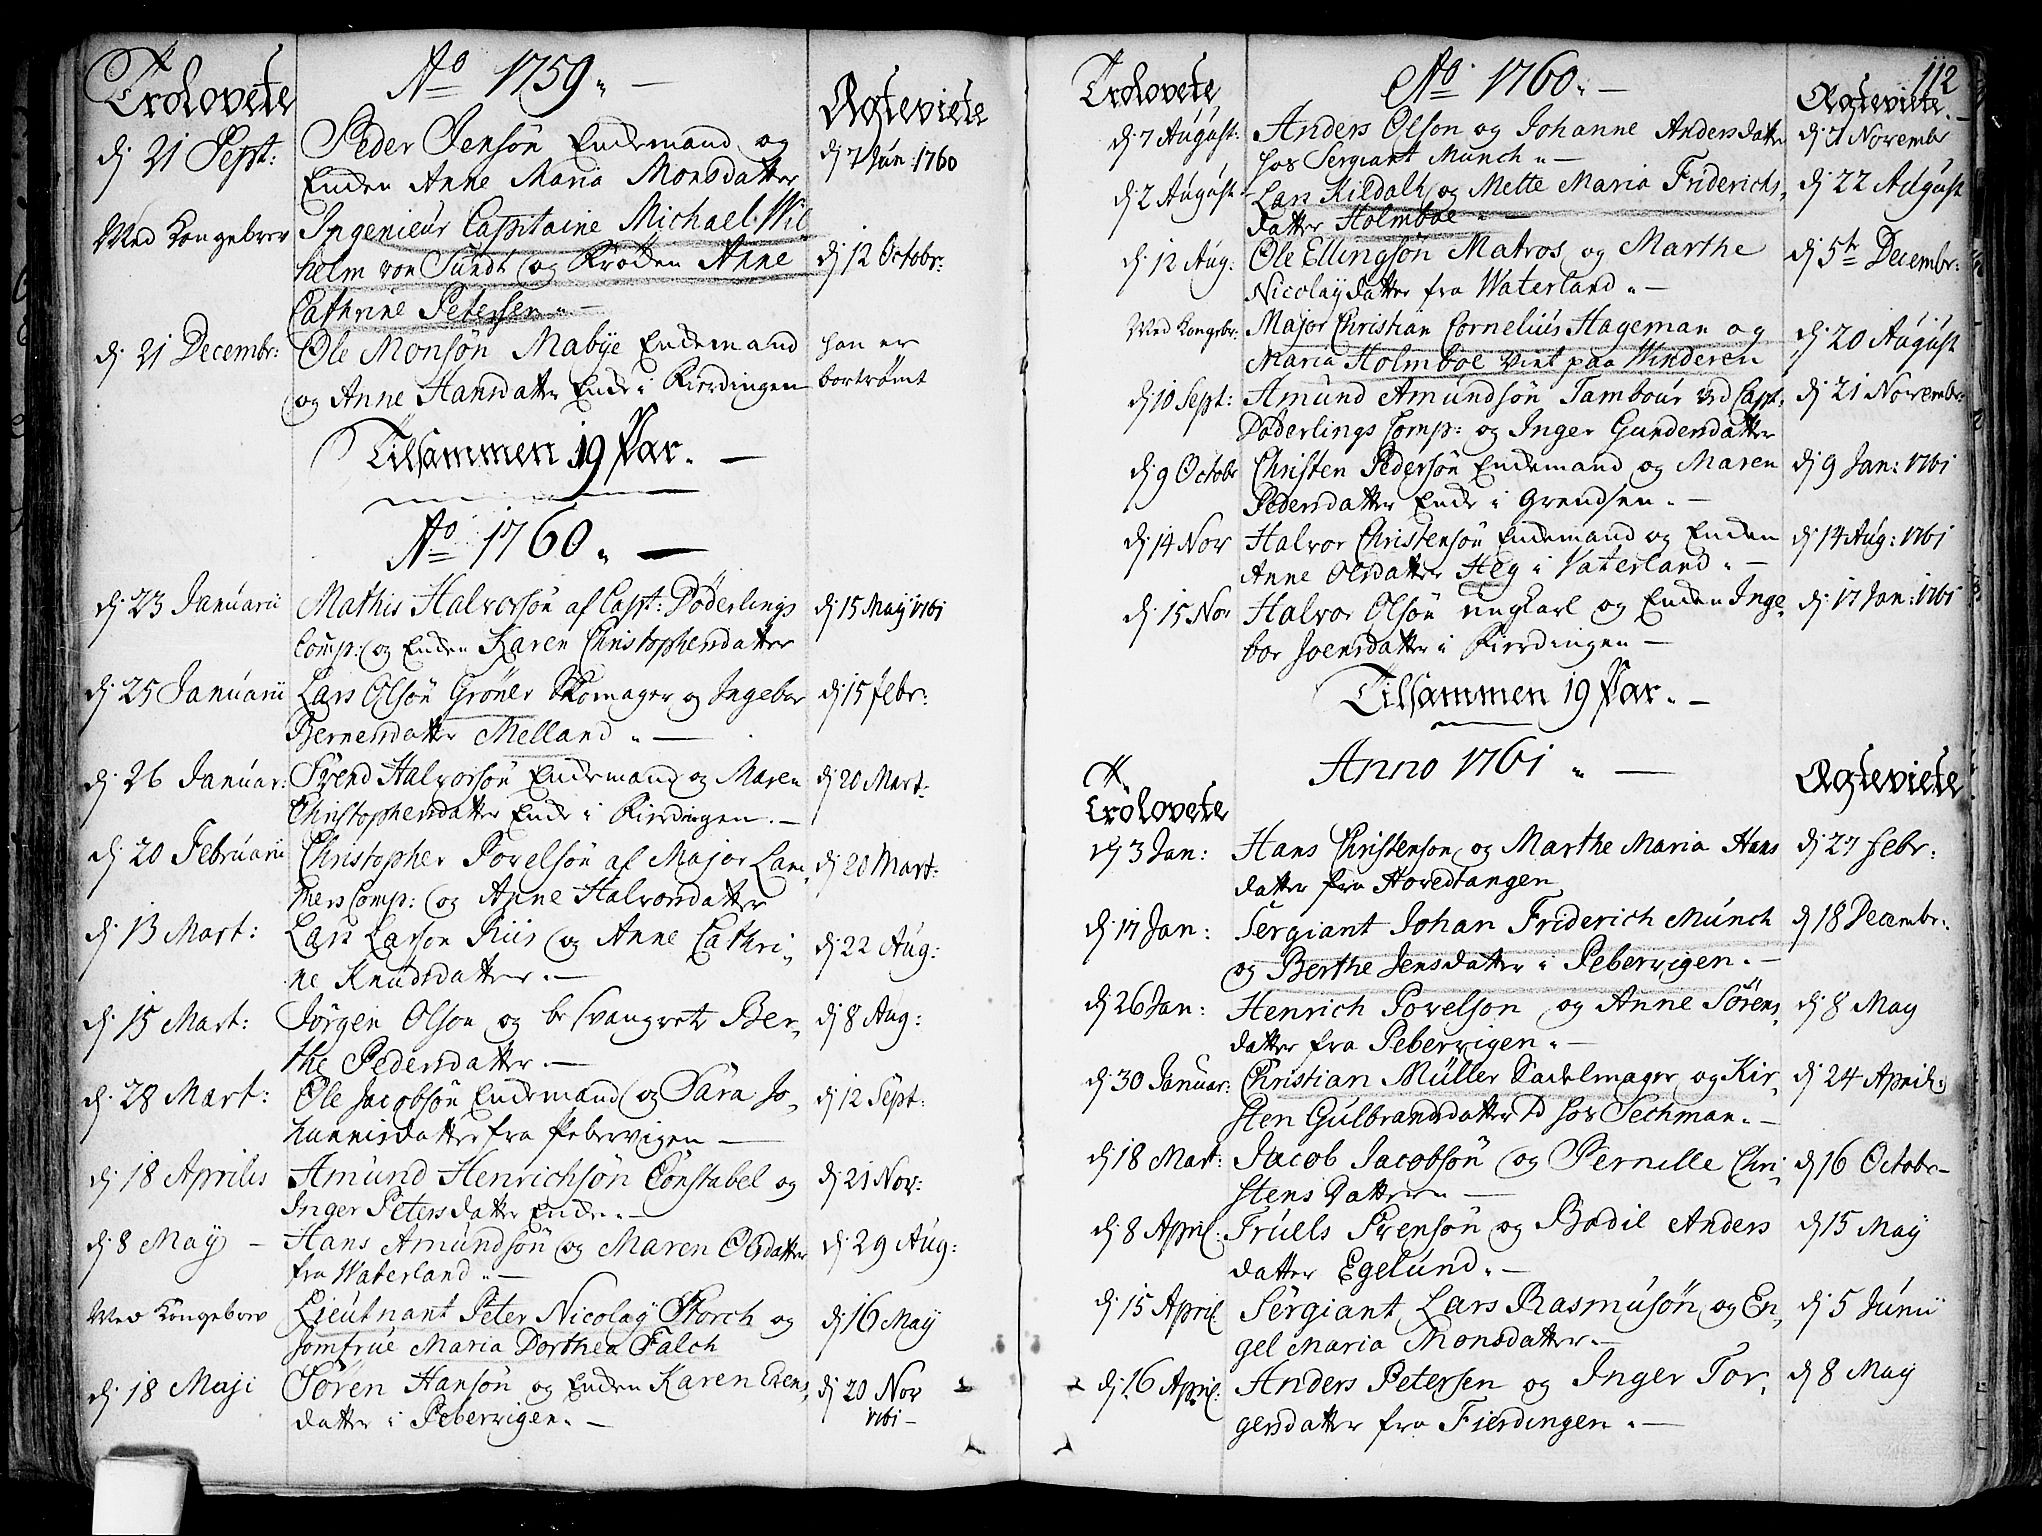 Trolovete
Ao 1759
Ægteviete
dj 21 Sept:
Peder Jensön Enckemand og
Enken Anne Maria Monsdatter
dj 7 Jun: 1760
Med Kongebrev
Ingenieur Capitaine Michael Wil
helm von Sundt og Fröken Anne
Cathrine Petersen
dj 12 Octobr:
dj 21 Decembr:
Ole Monsön Mabye Enckemand
og Anne Hansdatter Encke i Fierdingen
han er
bortrømt
Tilsammen 19 Par.
Ao 1760
dj 23 Januarii
Mathis Halvorsön af Capt: Döderlings
Comp: og Enken Karen Christophersdatter
dj 15 May 1761
dj 25 Januarii
Lars Olsön Gröner Skomager og Ingebor
Bernersdatter Melland
dj 15 febr:
dj 26 Januar:
Svend Halvorsön Enckemand og Maren
Christophersdatter Encke i Fierdingen.
dj 20 Mart:
dj 20 Februarii
Christopher Povelsön af Major Lem
mers Comp: og Anne Halvorsdatter
dj 20 Mart:
dj 13 Mart:
Lars Larson Riis og Anne Cathri,
ne Knudsdatter.
dj 22 Aug:
dj 15 Mart:
Jörgen Olson og besvangrede Ber,
the Pedersdatter.
dj 8 Aug:
dj 28 Mart:
Ole Jacobsön Enckemand og Sara Jo,
hannisdatter fra Pebervigen
dj 12 Sept:
dj 18 Aprilis
Amund Henrichsön Constabel og
Inger Petersdatter Encke.
dj 21 Nov:
dj 8 May
Hans Amundsön og Maren Olsdatter
fra Waterland
dj 29 Aug:
Med Kongebrev
Lieutnant Peter Nicolay Storch og
Jomfrue Maria Dorthea Falch
dj 16 May
dj 18 Maji
Sören Hansön og Enken Karen Evens,
datter i Pebervigen.
dj 20 Nov
1761
112
Trolovete
Ao 1760
Ægteviete
dj 7 August:
Anders Olson og Johanne Andersdatter
hos Sergiant Munch
dj 7 Novembr
dj 2 August
Lars Kildahl og Mette Maria Friderichs,
datter Holmboe
dj 22 August
dj 12 Aug:
Ole Ellingsön Matros og Marthe
Nicolaydatter fra Waterland
dj 5te Decembr:
Med Kongebr:
Major Christian Cornelius Hageman og
Maria Holmboe viet paa Vinderen
dj 20 August
dj 10 Sept:
Amund Amundsön Tambour ved Capt:
Döderlings Comp: og Inger Gundersdatter
dj 21 Novembr:
dj 9 Octobr
Christen Pedersön Enckemand og Maren
Pedersdatter Encke i Grendsen.
dj 9 Jan: 1761
dj 14 Nov
Halvor Christensön Enckemand og Enken
Anne Olsdatter Heg i Vaterland
dj 14 Aug: 1761
dj 15 Nov
Halvor Olsön ungkarl og Enken Inge,
bor Joensdatter i Fierdingen
dj 17 Jan: 1761
Tilsammen 19 Par.
Anno 1761
Trolovete
Ægteviete
dj 3 Jan:
Hans Christenson og Marthe Maria Hans
datter fra Hovedtangen
dj 27 febr:
dj 17 Jan:
Sergiant Johan Friderich Münch
og Berthe Jensdatter i Pebervigen.
dj 18 Decembr:
dj 26 Jan:
Henrich Povelson og Anne Sörens,
datter fra Pebervigen
dj 8 May
dj 30 Januar:
Christian Müller Sadelmager og Kir,
sten Gulbrandsdatter hos Sechman.
dj 24 April:
dj 18 Mart:
Jacob Jacobsön og Pernille Chri,
stens Datter
dj 16 Octobr
dj 8 April:
Truels Svensön og Bodil Anders
datter Egelund.
dj 15 May
dj 15 April:
Sergiant Lars Rasmusön og En,
gel Maria Monsdatter.
dj 5 Junii
dj 16 April:
Anders Petersen og Inger Tor,
gersdatter fra Fierdingen
dj 8 May